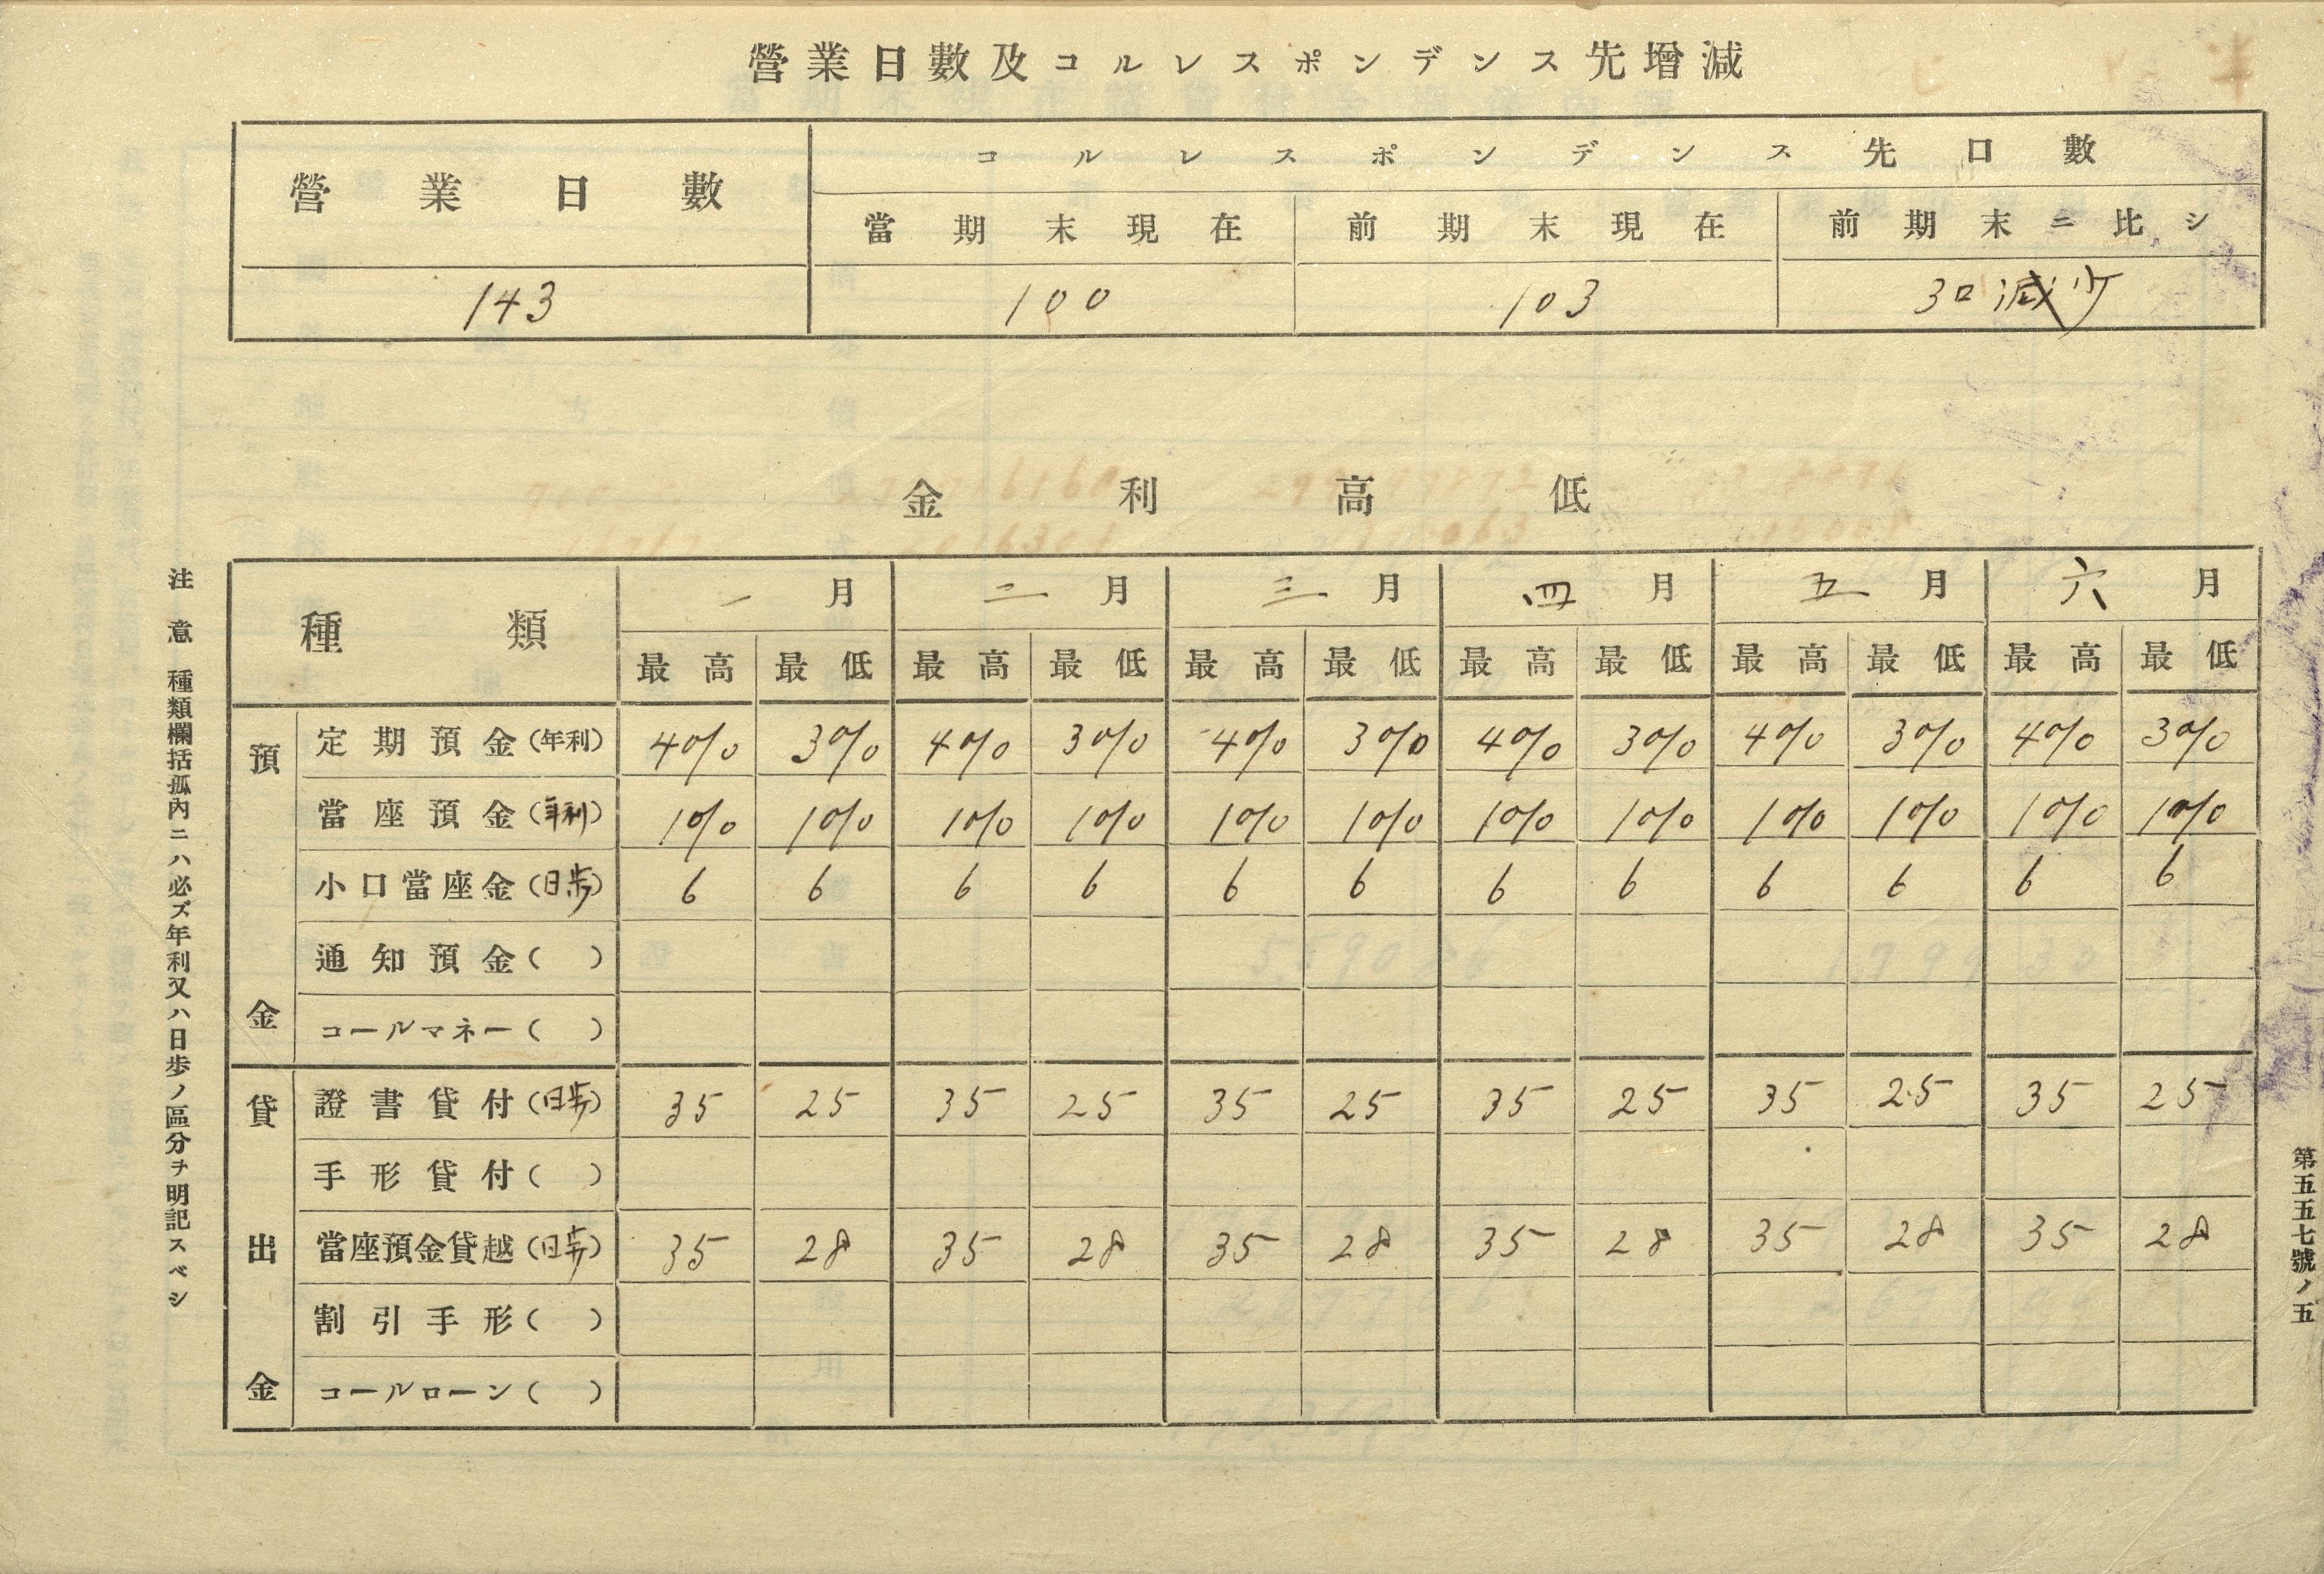 營業日數及コルレスポンデンス先增減
營業日數 コルレスポンデンス先口數
當期末現在 前期末現在 前期末ニ比シ
143 100 103 3口減少
金利高低
種類 一月 二月 三月 四月 五月 六月
最高 最低 最高 最低 最高 最低 最高 最低 最高 最低 最高 最低
預金
定期預金(年利) 4% 3% 4% 3% 4% 3% 4% 3% 4% 3% 4% 3%
當座預金(年利) 1% 1% 1% 1% 1% 1% 1% 1% 1% 1% 1% 1%
小口當座金(日歩) 6 6 6 6 6 6 6 6 6 6 6 6
通知預金( )
コールマネー( )
貸出金
證書貸付(日歩) 35 25 35 25 35 25 35 25 35 25 35 25
手形貸付( )
當座預金貸越(日歩) 35 28 35 28 35 28 35 28 35 28 35 28
割引手形( )
コールローン( )
注意 種類欄括弧內ニハ必ズ年利又ハ日歩ノ區分ヲ明記スベシ
第五五七號ノ五